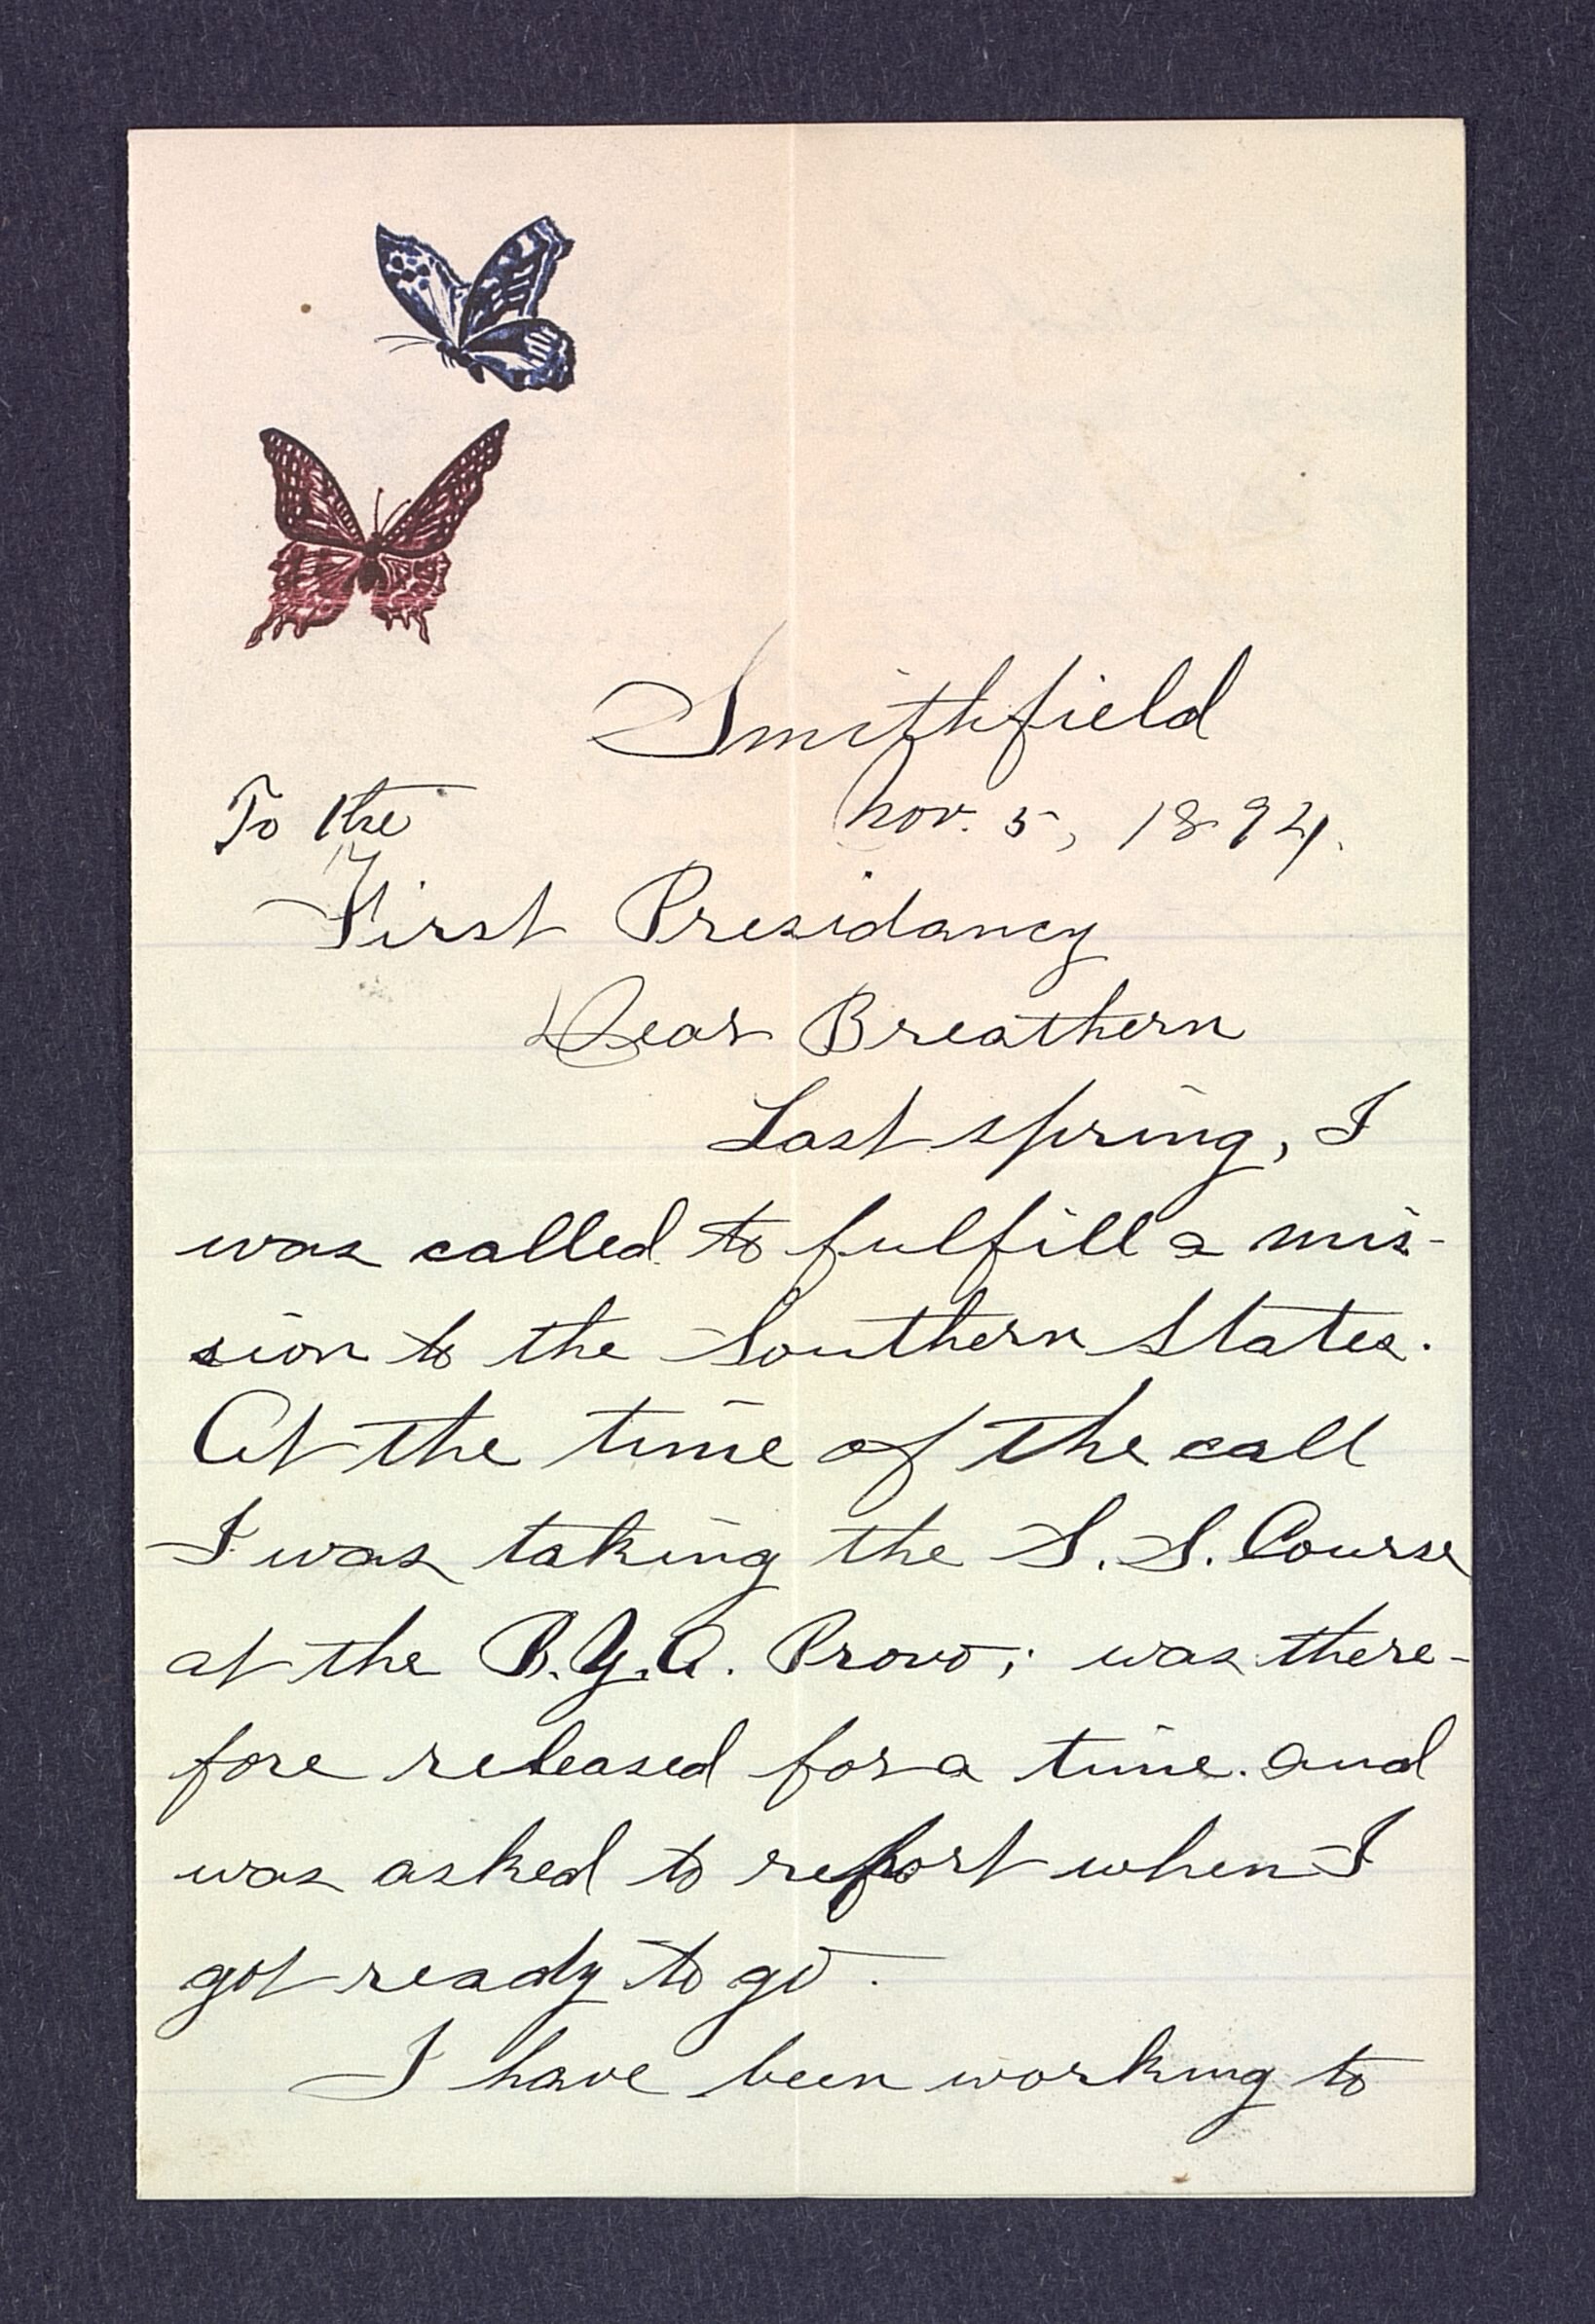 Smithfield
Nov. 5, 1894.
To the
First Presidancy
Dear Breathern
Last spring, I
was called to fulfill a mis-
sion to the Southern States.
At the time of the call
I was taking the S. S. Course
at the B.Y.A. Provo; was there-
fore released for a time. and
was asked to report when I
got ready to go.
I have been working to